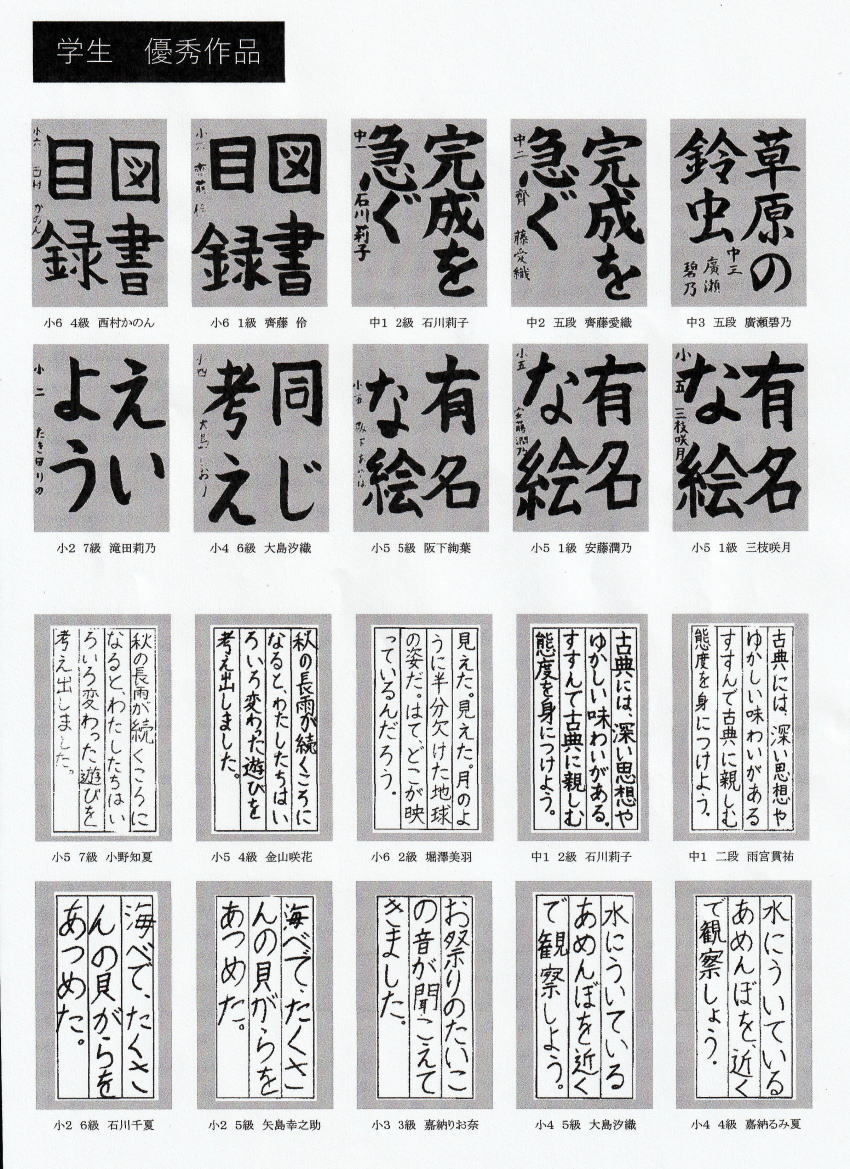 学生　優秀作品
草原の
鈴虫
中三
廣瀬
碧乃
中3 五段 廣瀬碧乃
完成を
急ぐ
中二 齊藤愛織
中2 五段 齊藤愛織
完成を
急ぐ
中一 石川莉子
中1 2級 石川莉子
図書
目録
小6 1級 齊藤 伶
図書
目録
小六 西村かのん
小6 4級 西村かのん
有名
な絵
小五 三枝咲月
小5 1級 三枝咲月
有名
な絵
小五 安藤潤乃
小5 1級 安藤潤乃
有名
な絵
小5 5級 阪下絢葉
同じ
考え
小4 6級 大島汐織
えい
よう
小二 たき田りの
小2 7級 滝田莉乃
古典には、深い思想や
ゆかしい味わいがある
すすんで古典に親しむ
態度を身につけよう。
中1 二段 雨宮貫祐
古典には、深い思想や
ゆかしい味わいがある。
すすんで古典に親しむ
態度を身につけよう。
中1 2級 石川莉子
見えた。見えた。月のよ
うに半分欠けた地球
の姿だ。はて、どこが映
っているんだろう。
小6 2級 堀澤美羽
秋の長雨が続くころに
なると、わたしたちはい
ろいろ変わった遊びを
考え出しました。
小5 4級 金山咲花
秋の長雨が続くころに
なると、わたしたちはい
ろいろ変わった遊びを
考え出しました。
小5 7級 小野知夏
水にういている
あめんぼを、近く
で観察しよう。
小4 4級 嘉納るみ夏
水にういている
あめんぼを近く
で観察しよう。
小4 5級 大島汐織
お祭りのたいこ
の音が聞こえて
きました。
小3 3級 嘉納りお奈
海べで、たくさ
んの貝がらを
あつめた。
小2 5級 矢島幸之助
海べで、たくさ
んの貝がらを
あつめた。
小2 6級 石川千夏